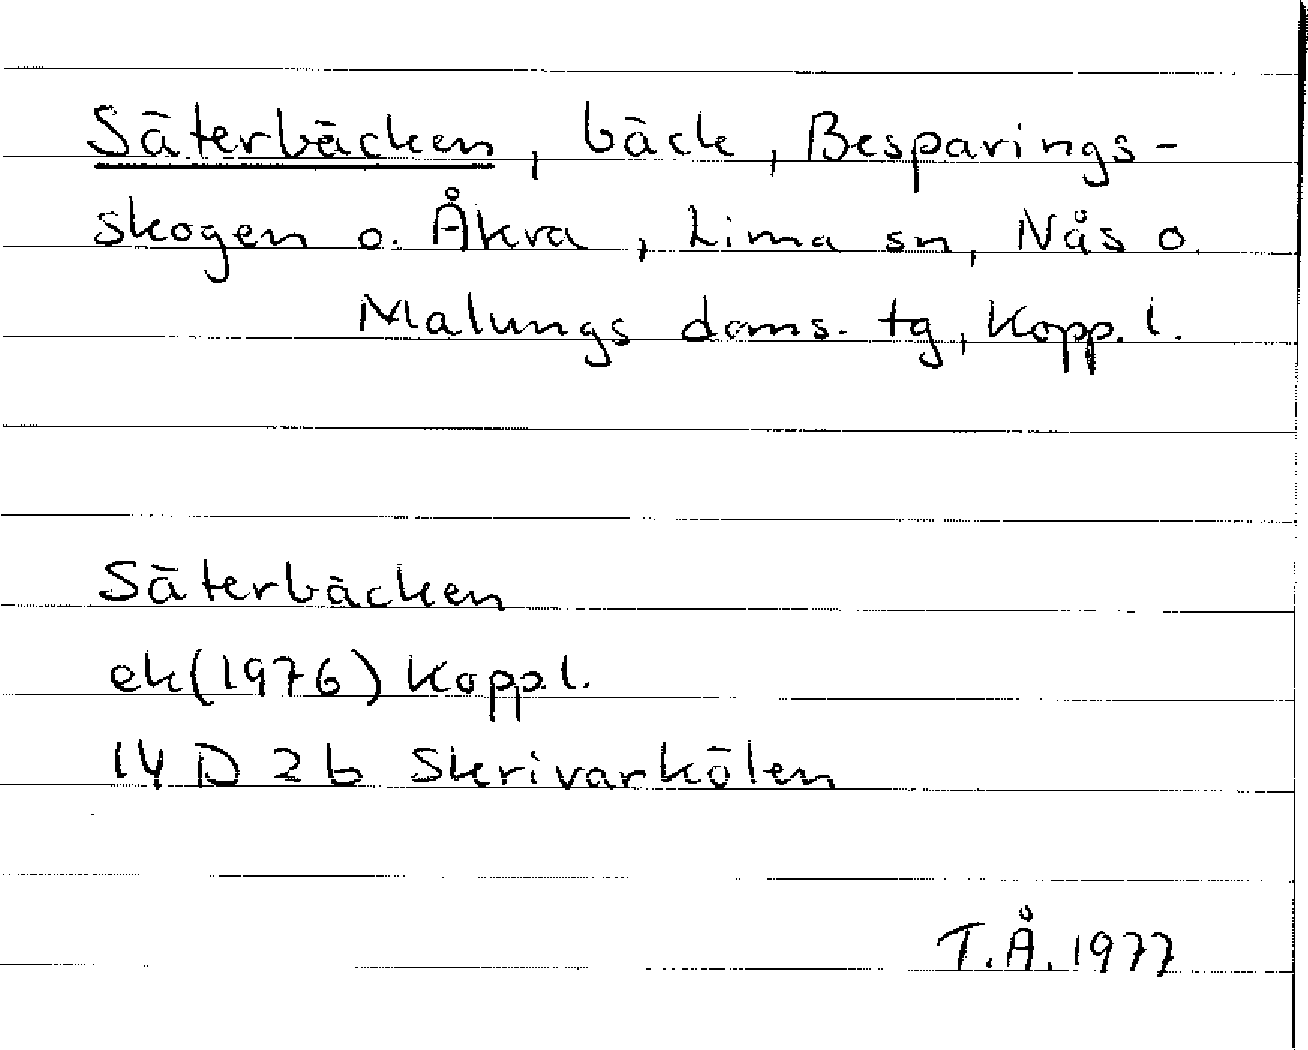 Säterbäcken, bäck, Besparings-
skogen o. Åkra, Lima sn, Nås o.
Malungs doms. tg, Kopp. l.
Säterbäcken
ek(1976) Kopp.l.
14 D 2 b Skrivarkölen
T.Å. 1977